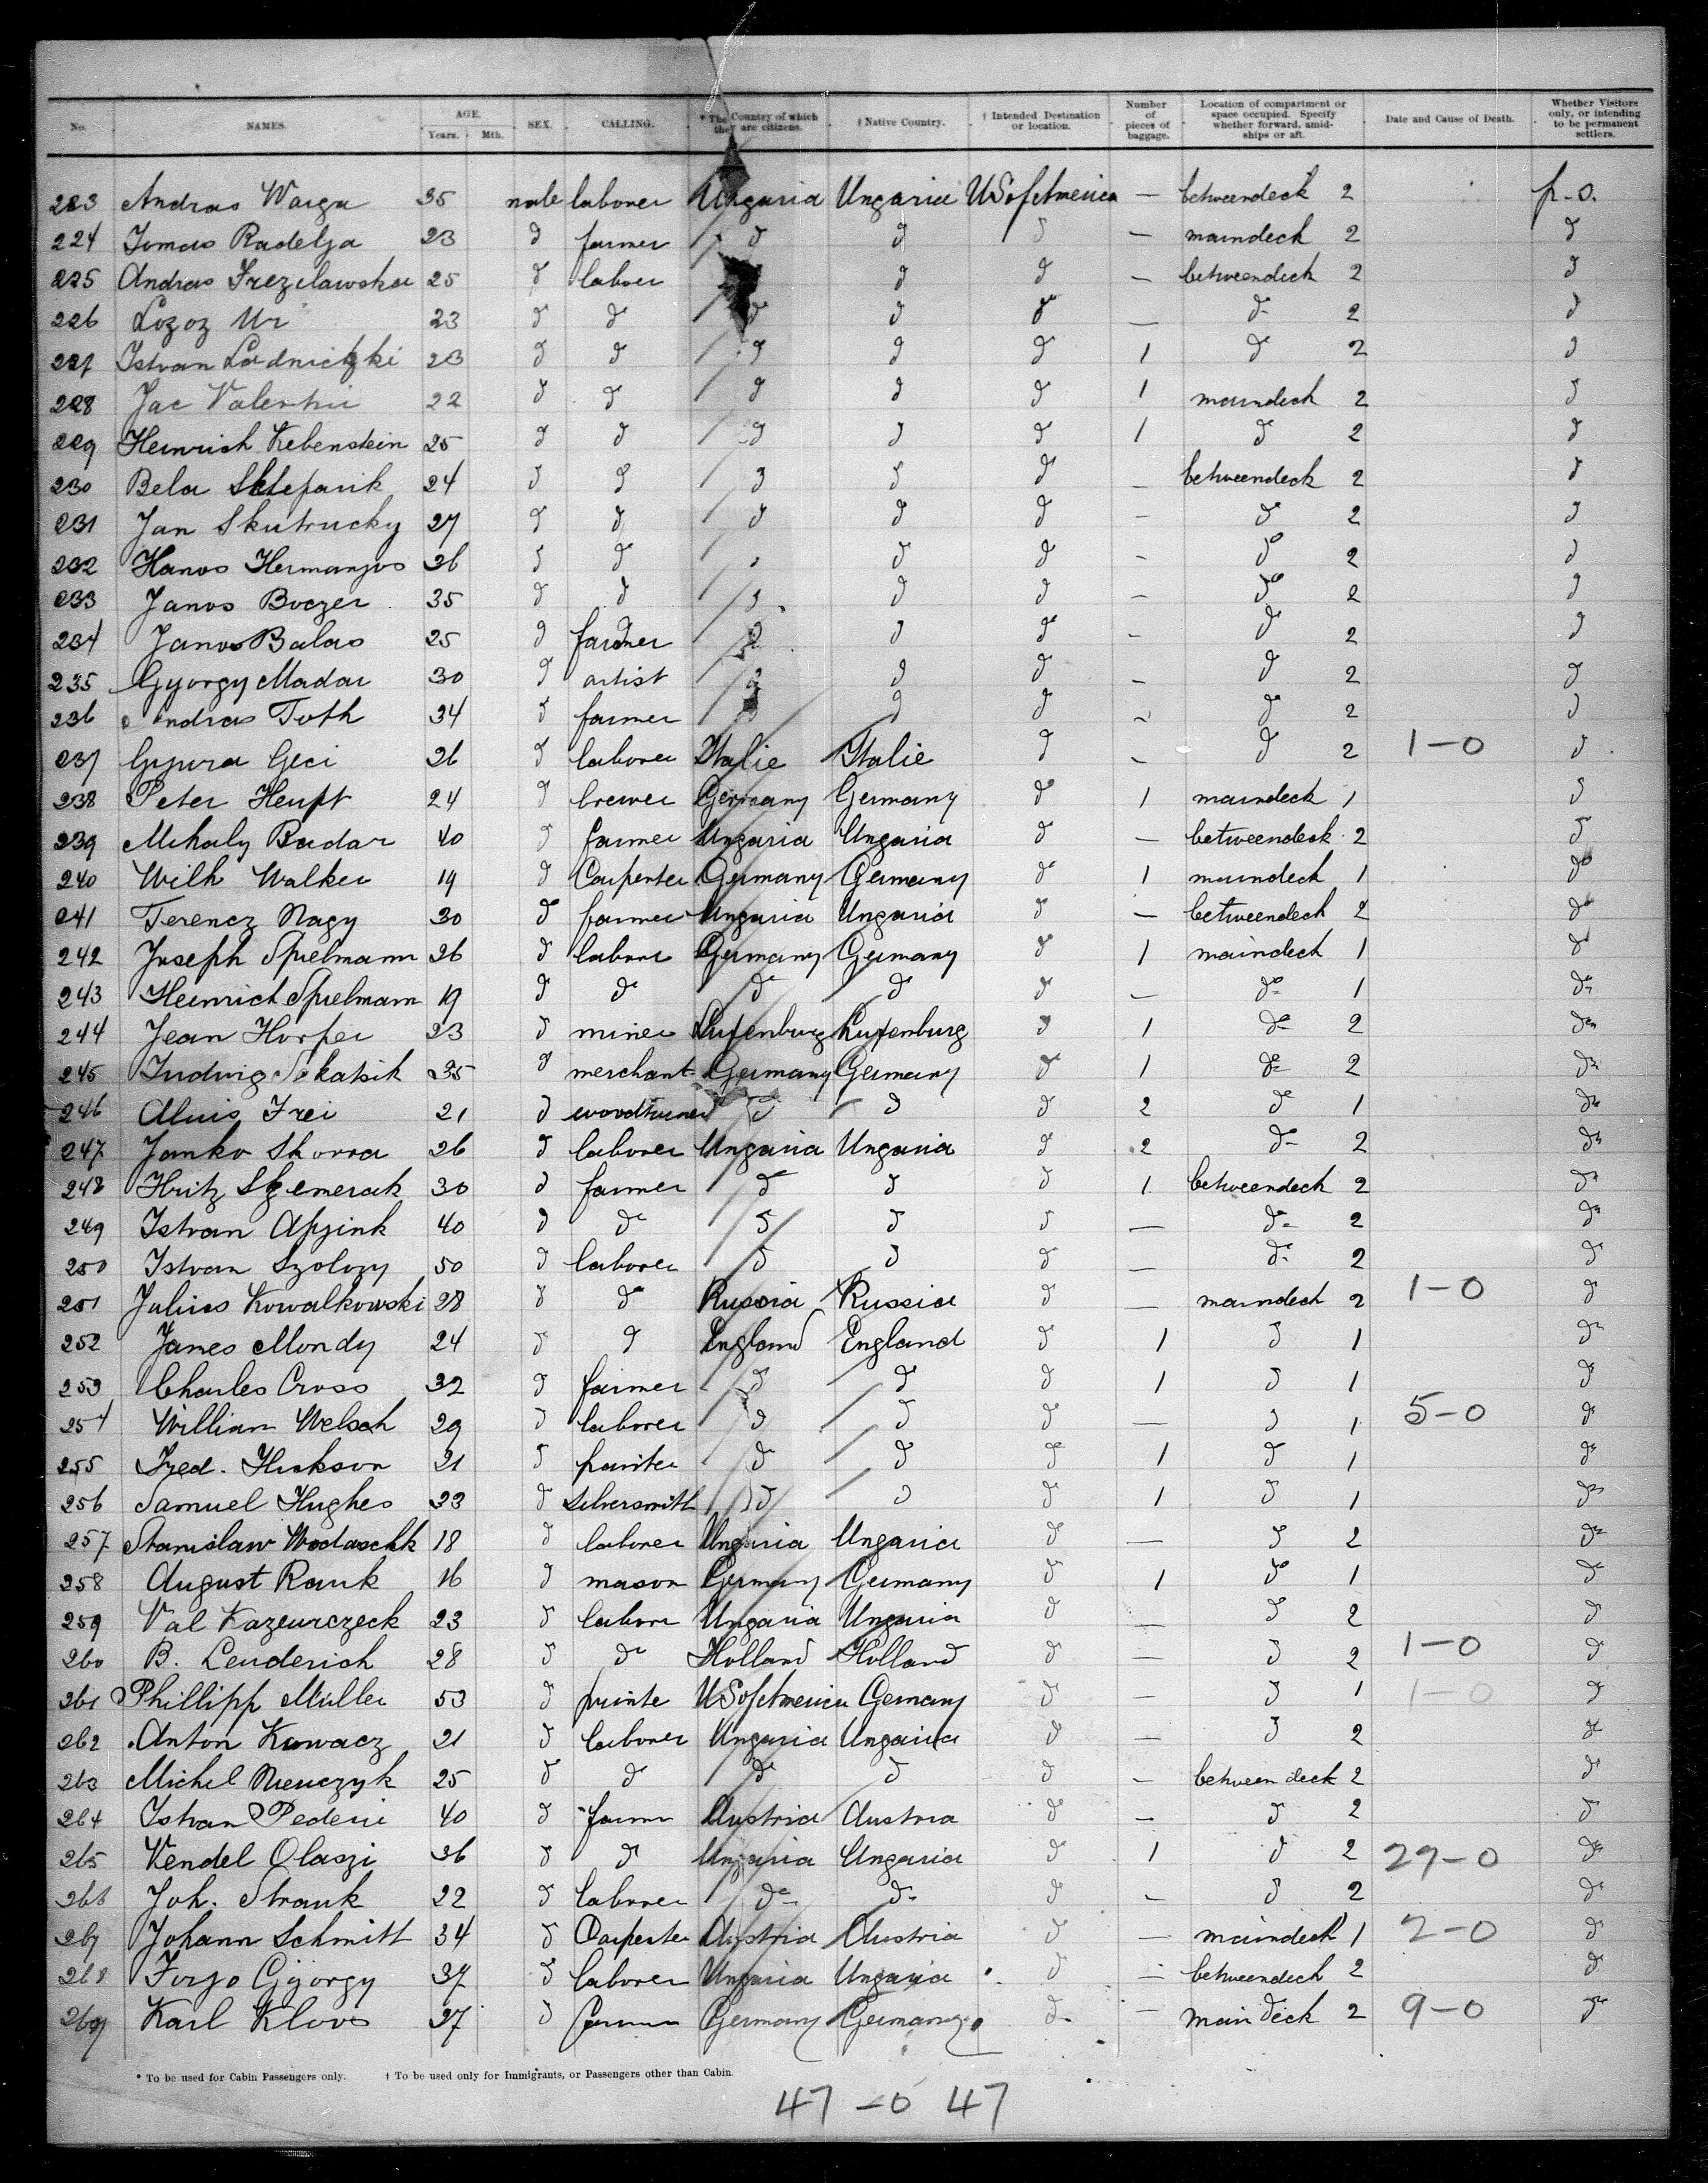 No. NAMES. AGE. Years. Mth. SEX. CALLING. * The Country of which they are citizens. † Native Country. † Intended Destination or location. Number of pieces of baggage. Location of compartment or space occupied. Specify whether forward, amidships or aft. Date and Cause of Death. Whether Visitors only, or intending to be permanent settlers.
223 Andras Warga 35 male laborer Ungaria Ungaria USofAmerica — betweendeck 2 p.s.
224 Tomas Radelja 23 do farmer do do do — maindeck 2 do
225 Andras Trezilawska 25 do laborer do do — betweendeck 2 do
226 Lozoz Ur 23 do do do do do — do 2 do
227 Istvan Ladnictzki 23 do do do do do 1 do 2 do
228 Jac Valentin 22 do do do do do 1 maindeck 2 do
229 Heinrich Kebenstein 25 do do do do do 1 do 2 do
230 Bela Sklefarik 24 do do do do do — betweendeck 2 do
231 Jan Skutrucky 27 do do do do do — do 2 do
232 Hanos Hermanyos 36 do do do do do — do 2 do
233 Janos Boczer 35 do do do do do — do 2 do
234 Janos Balas 25 do farmer do do do — do 2 do
235 Gyorgy Madar 30 do artist do do do — do 2 do
236 Andras Toth 34 do farmer do do do — do 2 do
237 Gyura Geci 26 do laborer Italie Italie do — do 2 1-0 do
238 Peter Heupt 24 do brewer Germany Germany do 1 maindeck 1 do
239 Mihaly Budar 40 do farmer Ungaria Ungaria do — betweendeck 2 do
240 Wilh Walker 19 do Carpenter Germany Germany do 1 maindeck 1 do
241 Ferencz Nagy 30 do farmer Ungaria Ungaria do — betweendeck 2 do
242 Joseph Spielmann 26 do laborer Germany Germany do 1 maindeck 1 do
243 Heinrich Spielmann 19 do do do do do — do 1 do
244 Jean Horper 23 do miner Luxenburg Luxenburg do 1 do 2 do
245 Ludwig Sokatsik 35 do merchant Germany Germany do 1 do 2 do
246 Aluis Frei 21 do woodturner do do do 2 do 1 do
247 Janko Skovra 26 do laborer Ungaria Ungaria do 2 do 2 do
248 Hritz Szemerak 30 do farmer do do do 1 betweendeck 2 do
249 Istvan Apjink 40 do do do do do — do 2 do
250 Istvan Szology 50 do laborer do do do — do 2 do
251 Julius Kowalkowski 28 do do Russia Russia do — maindeck 2 1-0 do
252 James Mondy 24 do do England England do 1 do 1 do
253 Charles Cross 32 do farmer do do do 1 do 1 do
254 William Welsch 29 do laborer do do do — do 1 5-0 do
255 Fred. Hickson 21 do painter do do do 1 do 1 do
256 Samuel Hughes 33 do Silversmith do do do 1 do 1 do
257 Stanislaw Wodaschk 18 do laborer Ungaria Ungaria do — do 2 do
258 August Rauk 16 do mason Germany Germany do 1 do 1 do
259 Val Kazeurczeck 23 do laborer Ungaria Ungaria do — do 2 do
260 B. Lenderich 28 do do Holland Holland do — do 2 1-0 do
261 Phillipp Müller 53 do private USofAmerica Germany do — do 1 1-0 do
262 Anton Kowacz 21 do laborer Ungaria Ungaria do — do 2 do
263 Michel Nienczyk 25 do do do do do — between deck 2 do
264 Istvan Pederi 40 do farmer Austria Austria do — do 2 do
265 Kendel Olaszi 36 do do Ungaria Ungaria do 1 do 2 29-0 do
266 Joh. Strauk 22 do laborer do do do — do 2 do
267 Johann Schmitt 34 do Carpenter Austria Austria do — maindeck 1 2-0 do
268 Forjo Gjorgy 37 do laborer Ungaria Ungaria do — betweendeck 2 do
269 Karl Kloos 27 do farmer Germany Germany do — main deck 2 9-0 do
* To be used for Cabin Passengers only. † To be used only for Immigrants, or Passengers other than Cabin.
47 - 0 47